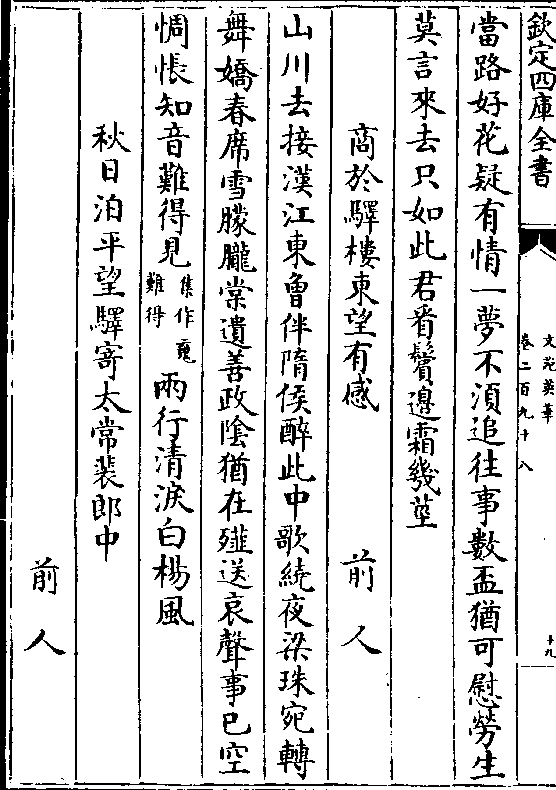 欽定四庫全書
文苑英華
卷二百九十八
十九
當路好花疑有情一夢不須追往事數盃猶可慰勞生
莫言來去只如此君看鬢邊霜幾莖
商於驛樓東望有感
前人
山川去接漢江東曾伴隋侯醉此中歌繞夜梁珠宛轉
舞嬌春席雪朦朧棠遺善政陰猶在薤送哀聲事已空
惆悵知音難得見集作竟難得兩行清淚白楊風
秋日泊平望驛寄太常裴郎中
前人